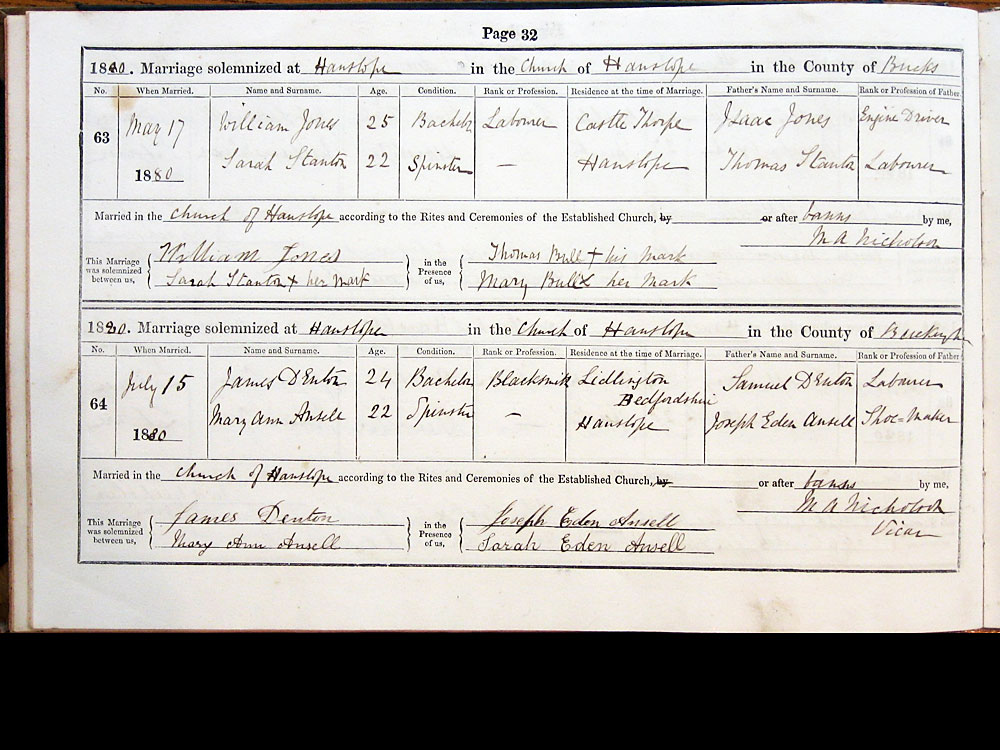 Page 32
1880. Marriage solemnized at Hanslope in the Church of Hanslope in the County of Bucks
No. When Married. Name and Surname. Age. Condition. Rank or Profession. Residence at the time of Marriage. Father's Name and Surname. Rank or Profession of Father.
63 May 17 William Jones 25 Bachelor Labourer Castle Thorpe Isaac Jones Engine Driver
1880 Sarah Stanton 22 Spinster — Hanslope Thomas Stanton Labourer
Married in the Church of Hanslope according to the Rites and Ceremonies of the Established Church, by or after banns by me,
M A Nicholson
This Marriage was solemnized between us, William Jones in the Presence of us, Thomas Bull + his mark
Sarah Stanton + her mark Mary Bull x her mark
1880. Marriage solemnized at Hanslope in the Church of Hanslope in the County of
No. When Married. Name and Surname. Age. Condition. Rank or Profession. Residence at the time of Marriage. Father's Name and Surname. Rank or Profession of Father
64 July 15 James Denton 24 Bachelor Blacksmith Lidlington Bedfordshire Samuel Denton Labourer
1880 Mary Ann Ansell 22 Spinster — Hanslope Joseph Eden Ansell Shoe=maker
Married in the Church of Hanslope according to the Rites and Ceremonies of the Established Church, by or after banns by me,
M A Nicholson
Vicar
This Marriage was solemnized between us, James Denton in the Presence of us, Joseph Eden Ansell
Mary Ann Ansell Sarah Eden Ansell